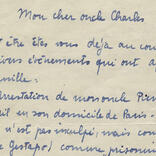 Mon cher oncle Charles
être êtes vous déjà au cou
ivers événements qui ont a
mille:
arrestation de mononcle Pier
il en son domicile de Paris-
n'est pas inculpé, mais con
Gestapo) comme prisonnie